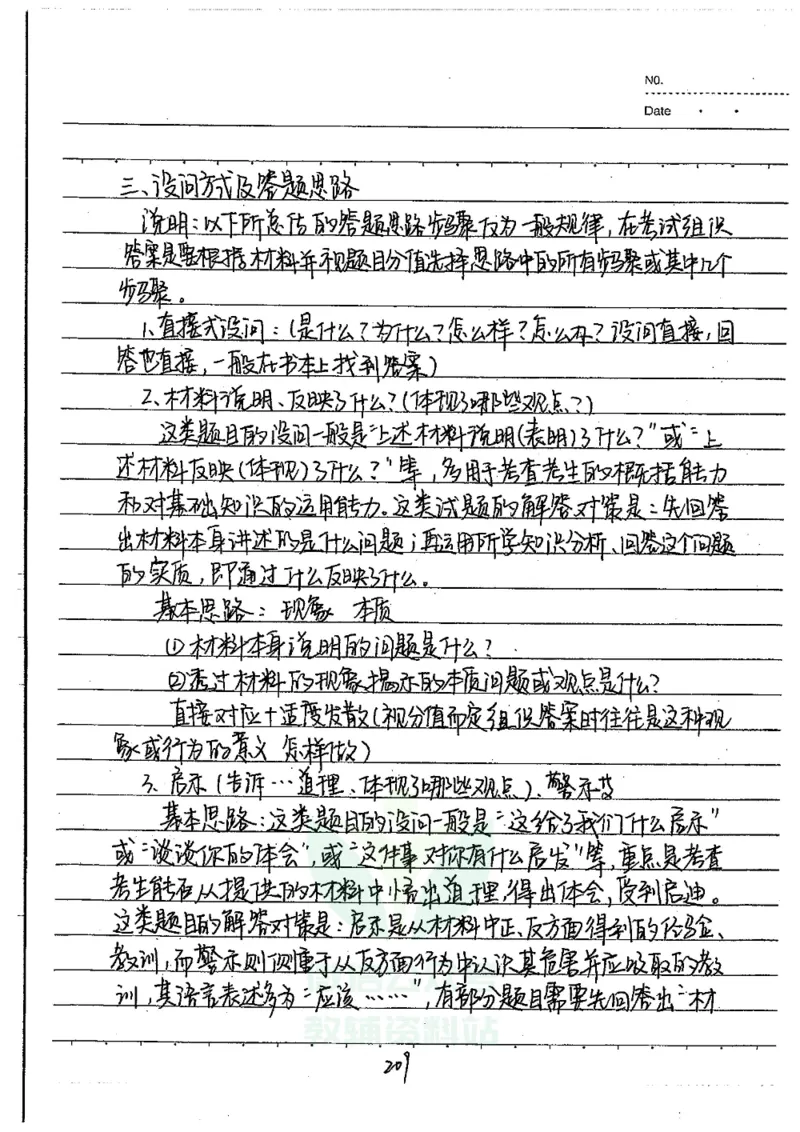 NO.
Date
三、设问方式及答题思路
说明:以下所总结的答题思路步骤仅为一般规律,在考试组织
答案是要根据材料并视题目分值选择思路中的所有步骤或其中几个
步骤。
1、直接式设问:(是什么?为什么?怎么样?怎么办?设问直接,回
答也直接,一般在书本上找到答案)
2、材料说明、反映了什么?(体现了哪些观点?)
这类题目的设问一般是“上述材料说明(表明)了什么?”或“上
述材料反映(体现)了什么?”等,多用于考查考生的概括能力
和对基础知识的运用能力。这类试题的解答对策是:先回答
出材料本身讲述的是什么问题;再运用所学知识分析、回答这个问题
的实质,即通过什么反映了什么。
基本思路:现象 本质
①材料本身说明的问题是什么?
②透过材料的现象揭示的本质问题或观点是什么?
直接对应+适度发散(视分值而定组织答案时往往是这种现
象或行为的意义 怎样做)
3、启示(告诉…道理、体现了哪些观点)、警示等
基本思路:这类题目的设问一般是“这给了我们什么启示”
或“谈谈你的体会”,或“这件事对你有什么启发”等,重点是考查
考生能否从提供的材料中悟出道理,得出体会,受到启迪。
这类题目的解答对策是:启示是从材料中正、反方面得到的经验、
教训,而警示则侧重于从反方面行为中认识其危害并应吸取的教
训,其语言表述多为“应该……”,有部分题目需要先回答出“材
教辅资料站
209